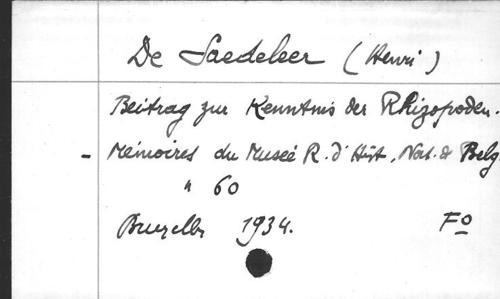 De Saedeleer (Henri)
Beitrag zur Kenntnis der Rhizopoden.
- Mémoires du Museé R. d'Hist. Nat. d Belg.
" 60
Bruxelles 1934. Fo